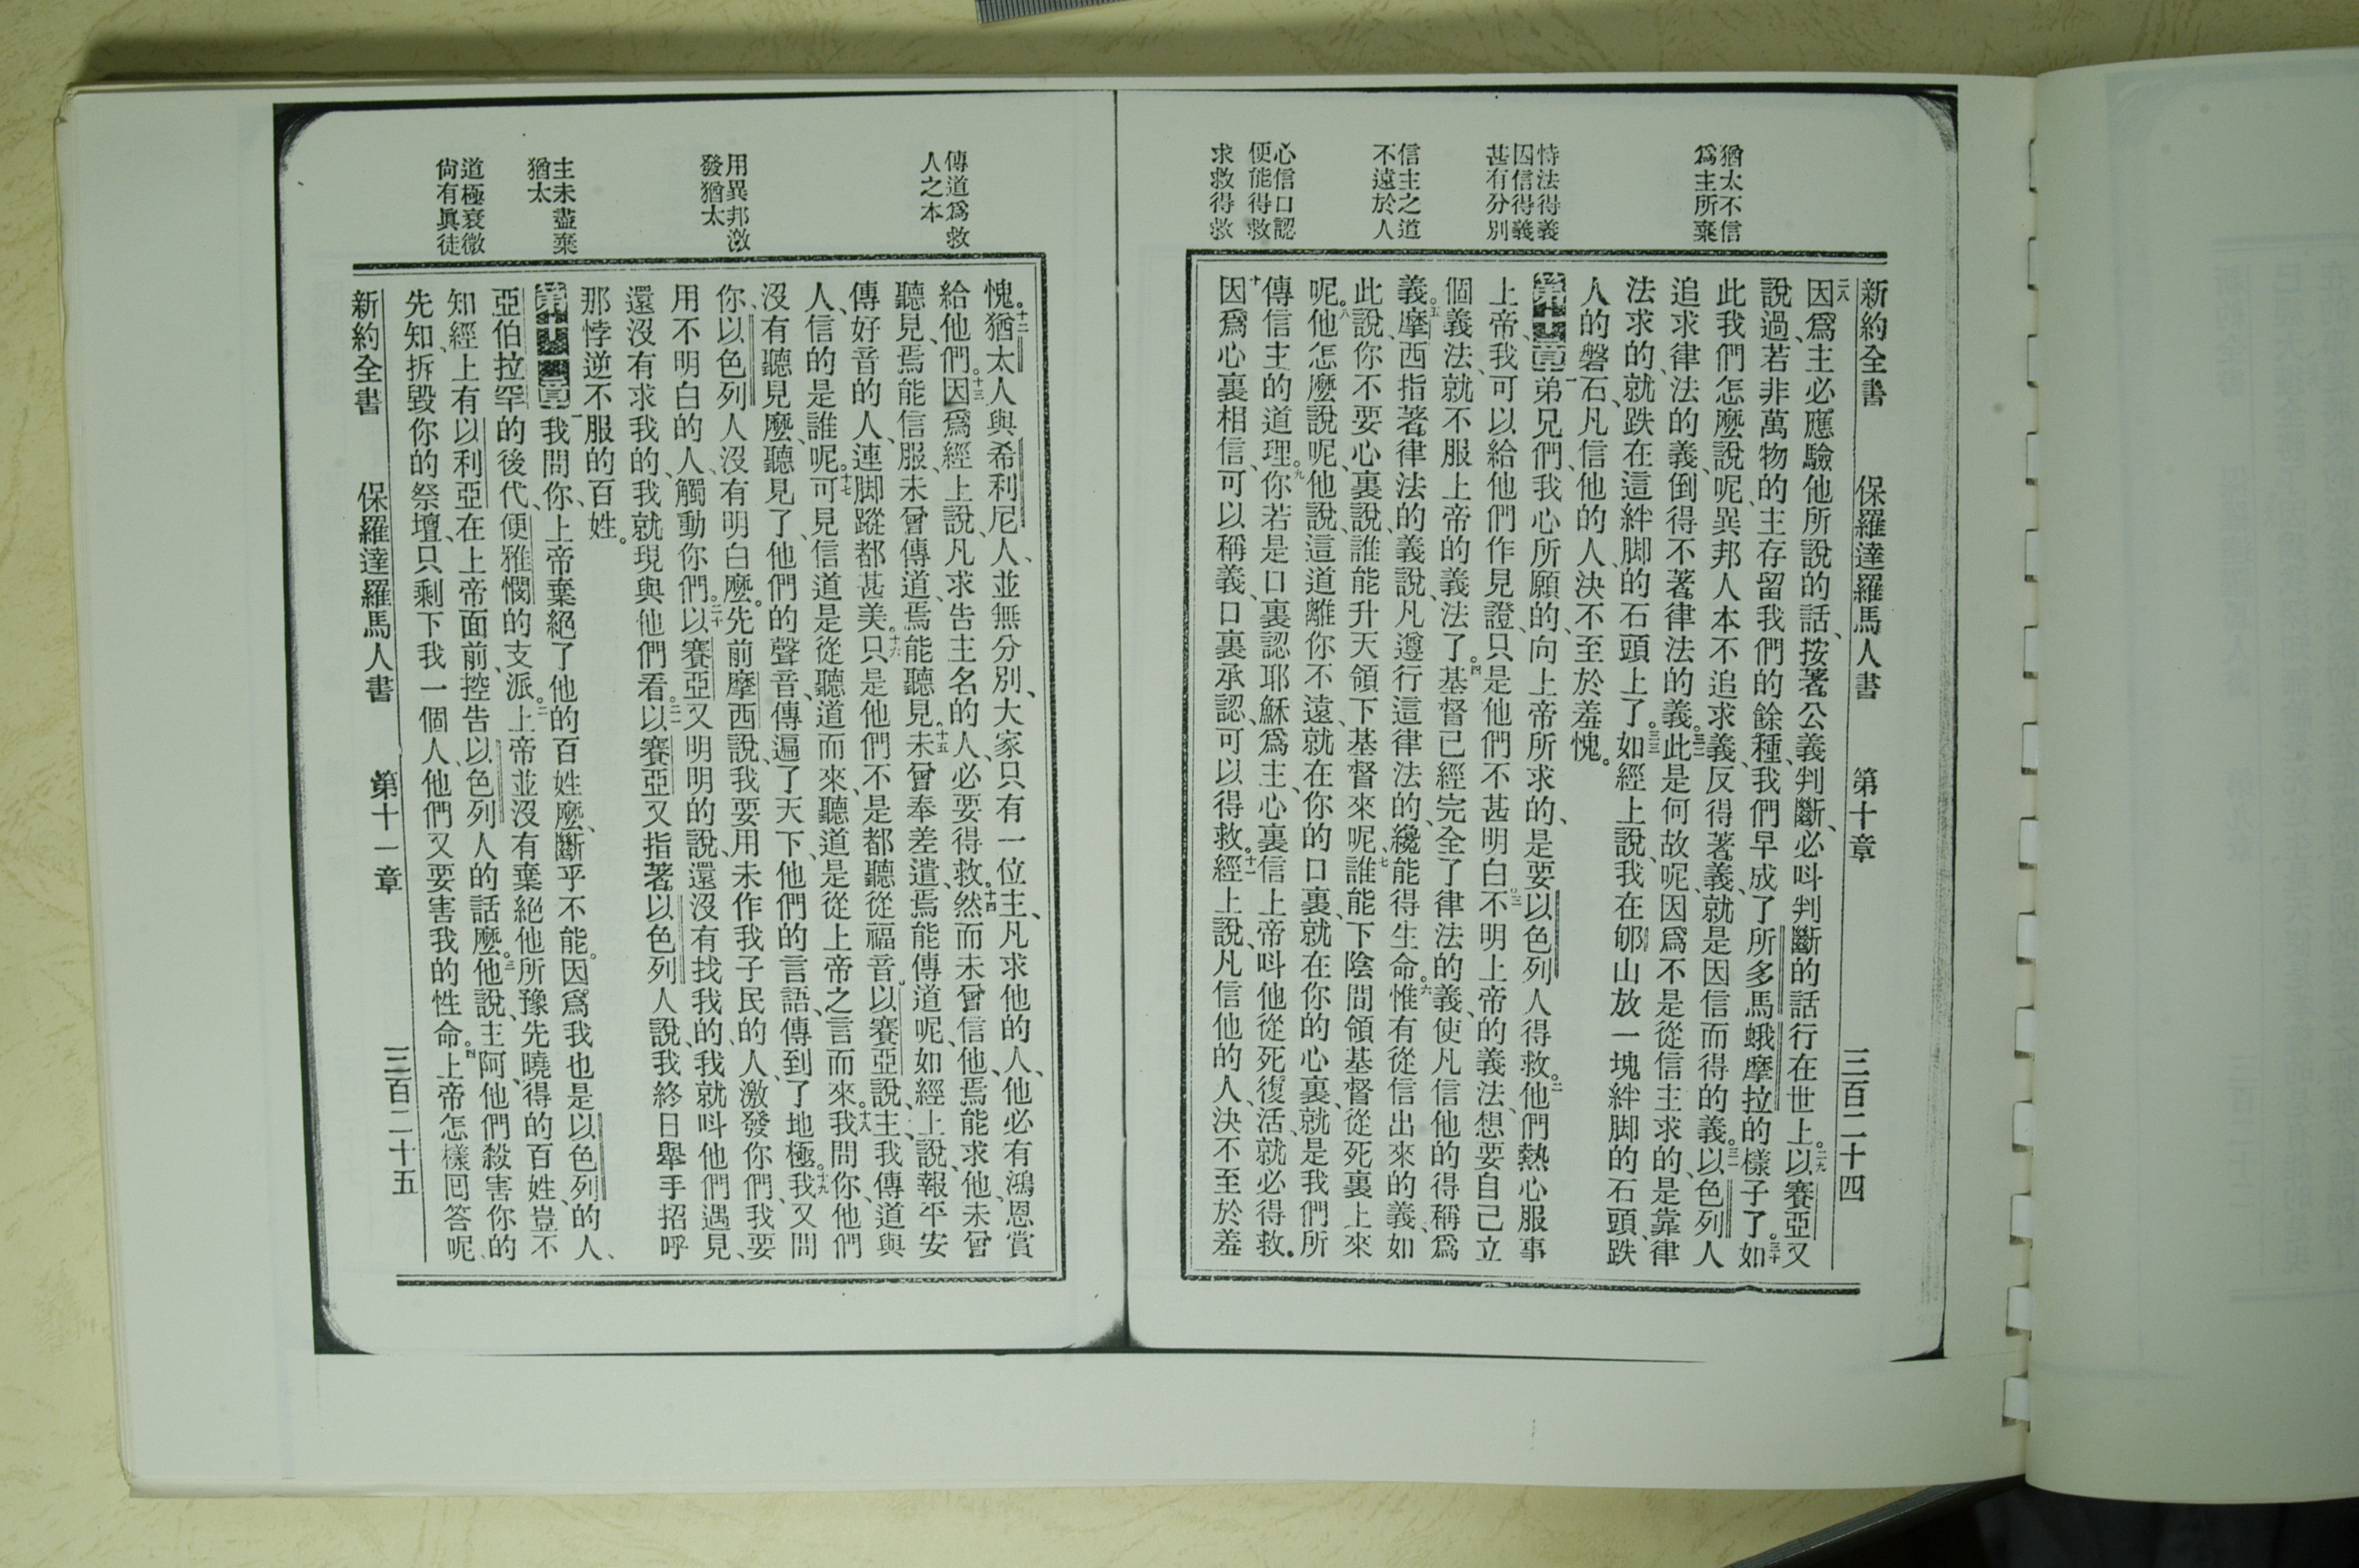 猶太不信
爲主所棄
恃法得義
因信得義
甚有分別
信主之道
不遠於人
心信口認
便能得救
求救得救
新約全書 保羅達羅馬人書 第十章 三百二十四
二八因爲主必應驗他所說的話、按著公義判斷、必呌判斷的話行在世上。二九以賽亞又
說過、若非萬物的主存留我們的餘種、我們早成了所多馬蛾摩拉的樣子了。三十如
此我們怎麼說呢、異邦人本不追求義、反得著義、就是因信而得的義。三一以色列人
追求律法的義、倒得不著律法的義。三二此是何故呢、因爲不是從信主求的、是靠律
法求的、就跌在這絆脚的石頭上了。三三如經上說、我在郇山放一塊絆脚的石頭、跌
人的磐石、凡信他的人、決不至於羞愧。
第十章一弟兄們、我心所願的、向上帝所求的、是要以色列人得救。二他們熱心服事
上帝、我可以給他們作見證、只是他們不甚明白。三不明上帝的義法、想要自己立
個義法、就不服上帝的義法了。四基督已經完全了律法的義、使凡信他的得稱爲
義。五摩西指著律法的義說、凡遵行這律法的、纔能得生命。六惟有從信出來的義、如
此說、你不要心裏說、誰能升天領下基督來呢、七誰能下陰間領基督從死裏上來
呢。八他怎麼說呢、他說、這道離你不遠、就在你的口裏、就在你的心裏、就是我們所
傳信主的道理。九你若是口裏認耶穌爲主、心裏信上帝呌他從死復活、就必得救。
十因爲心裏相信、可以稱義、口裏承認、可以得救。十一經上說、凡信他的人、決不至於羞
傳道爲救
人之本
用異邦激
發猶太
主未盡棄
猶太
道極衰微
尙有眞徒
愧。十二猶太人與希利尼人、並無分別、大家只有一位主、凡求他的人、他必有鴻恩賞
給他們。十三因爲經上說、凡求告主名的人、必要得救。十四然而未曾信他、焉能求他、未曾
聽見、焉能信服、未曾傳道、焉能聽見。十五未曾奉差遣、焉能傳道呢、如經上說、報平安
傳好音的人、連脚蹤都甚美。十六只是他們不是都聽從福音。以賽亞說、主、我傳道與
人、信的是誰呢。十七可見信道是從聽道而來、聽道是從上帝之言而來。十八我問你、他們
沒有聽見麼、聽見了、他們的聲音、傳遍了天下、他們的言語、傳到了地極。十九我又問
你、以色列人沒有明白麼。先前摩西說、我要用未作我子民的人、激發你們、我要
用不明白的人、觸動你們。二十以賽亞又明明的說、還沒有找我的、我就呌他們遇見、
還沒有求我的、我就現與他們看。二一以賽亞又指著以色列人說、我終日舉手招呼
那悖逆不服的百姓。
第十一章一我問你、上帝棄絕了他的百姓麼、斷乎不能。因爲我也是以色列的人、
亞伯拉罕的後代、便雅憫的支派。二上帝並沒有棄絕他所豫先曉得的百姓、豈不
知經上有以利亞在上帝面前、控告以色列人的話麼。三他說、主阿、他們殺害你的
先知、拆毀你的祭壇、只剩下我一個人、他們又要害我的性命。四上帝怎樣囘答呢、
新約全書 保羅達羅馬人書 第十一章 三百二十五